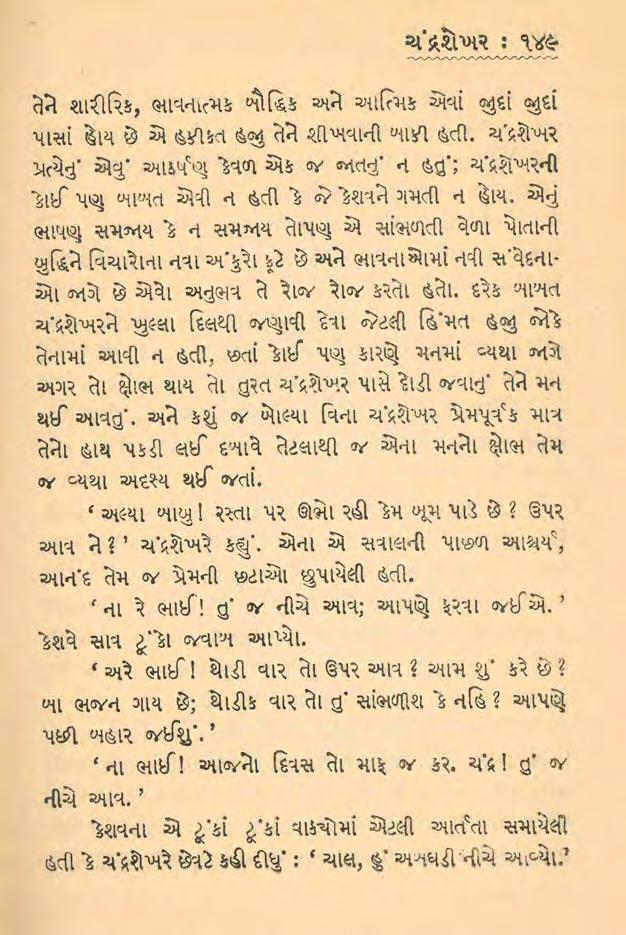 ચંદ્રશેખર : ૧૪૯
તેને શારીરિક, ભાવનાત્મક બૌદ્ધિક અને આત્મિક એવાં જુદાં જુદાં
પાસાં હોય છે એ હકીકત હજુ તેને શીખવાની બાકી હતી. ચંદ્રશેખર
પ્રત્યેનું એવું આકર્ષણ કેવળ એક જ જાતનું ન હતું; ચંદ્રશેખરની
કોઈ પણ બાબત એવી ન હતી કે જે કેશવને ગમતી ન હોય. એનું
ભાષણ સમજાય કે ન સમજાય તોપણ એ સાંભળતી વેળા પોતાની
બુદ્ધિને વિચારોના નવા અંકુરો ફૂટે છે અને ભાવનાઓમાં નવી સંવેદના-
ઓ જાગે છે એવો અનુભવ તે રોજ રોજ કરતો હતો. દરેક બાબત
ચંદ્રશેખરને ખુલ્લા દિલથી જણાવી દેવા જેટલી હિંમત હજુ જોકે
તેનામાં આવી ન હતી, છતાં કોઈ પણ કારણે મનમાં વ્યથા જાગે
અગર તો ક્ષોભ થાય તો તુરત ચંદ્રશેખર પાસે દોડી જવાનું તેને મન
થઈ આવતું. અને કશું જ બોલ્યા વિના ચંદ્રશેખર પ્રેમપૂર્વક માત્ર
તેનો હાથ પકડી લઈ દબાવે તેટલાથી જ એના મનનો ક્ષોભ તેમ
જ વ્યથા અદૃશ્ય થઈ જતાં.
‘ અલ્યા બાબુ! રસ્તા પર ઊભો રહી કેમ બૂમ પાડે છે? ઉપર
આવ ને?’ ચંદ્રશેખરે કહ્યું. એના એ સવાલની પાછળ આશ્ચર્ય,
આનંદ તેમ જ પ્રેમની છટાઓ છુપાયેલી હતી.
‘ ના રે ભાઈ! તું જ નીચે આવ; આપણે ફરવા જઈએ. ’
કેશવે સાવ ટૂંકો જવાબ આપ્યો.
‘ અરે ભાઈ! થોડી વાર તો ઉપર આવ? આમ શું કરે છે?
બા ભજન ગાય છે; થોડીક વાર તો તું સાંભળીશ કે નહિ? આપણે
પછી બહાર જઈશું.’
‘ ના ભાઈ! આજનો દિવસ તો માફ જ કર. ચંદ્ર! તું જ
નીચે આવ. ’
કેશવના એ ટૂંકાં ટૂંકાં વાક્યોમાં એટલી આર્તતા સમાયેલી
હતી કે ચંદ્રશેખરે છેવટે કહી દીધું : ‘ ચાલ, હું અબઘડી નીચે આવ્યો.’